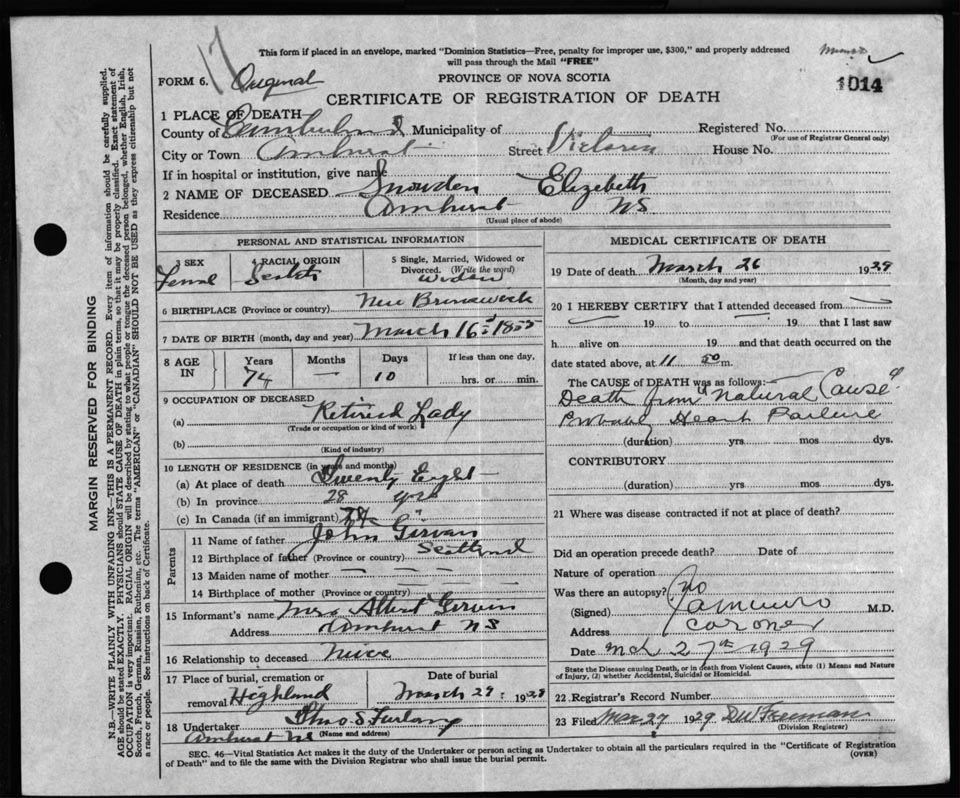 17
This form if placed in an envelope, marked "Dominion Statistics—Free, penalty for improper use, $300," and properly addressed
will pass through the Mail "FREE"
FORM 6. Original
PROVINCE OF NOVA SCOTIA
1014
CERTIFICATE OF REGISTRATION OF DEATH
1 PLACE OF DEATH—
County of Cumberland Municipality of Registered No.
(For use of Registrar General only)
City or Town Amherst Street Victoria House No.
If in hospital or institution, give name
2 NAME OF DECEASED Snowden Elizabeth
Residence Amherst NS
(Usual place of abode)
PERSONAL AND STATISTICAL INFORMATION
3 SEX 4 RACIAL ORIGIN 5 Single, Married, Widowed or
Divorced. (Write the word)
Female Scotch Widow
6 BIRTHPLACE (Province or country) New Brunswick
7 DATE OF BIRTH (month, day and year) March 16 1855
8 AGE IN Years Months Days If less than one day,
74 — 10 hrs. or min.
9 OCCUPATION OF DECEASED
(a) Retired Lady
(Trade or occupation or kind of work)
(b)
(Kind of industry)
10 LENGTH OF RESIDENCE (in years and months)
(a) At place of death Twenty Eight
(b) In province 28 yrs
(c) In Canada (if an immigrant) 74 "
Parents
11 Name of father John Girvan
12 Birthplace of father (Province or country) Scotland
13 Maiden name of mother — — —
14 Birthplace of mother (Province or country) — —
15 Informant's name Mrs Albert Girvin
Address Amherst NS
16 Relationship to deceased Niece
17 Place of burial, cremation or removal Highland
Date of burial
March 29 1929
18 Undertaker Thos S Furlong
Amherst NS (Name and address)
MEDICAL CERTIFICATE OF DEATH
19 Date of death March 26 1929
(Month, day and year)
20 I HEREBY CERTIFY that I attended deceased from
19 to 19 that I last saw
h alive on 19 and that death occurred on the
date stated above, at 11 50 m.
The CAUSE of DEATH was as follows:—
Death from "Natural Cause"
Probably Heart Failure
(duration) yrs. mos dys.
CONTRIBUTORY
(duration) yrs. mos dys.
21 Where was disease contracted if not at place of death?
Did an operation precede death? Date of
Nature of operation
Was there an autopsy? no
(Signed) M.D.
Address coroner
Date Mch 27th 1929
State the Disease causing Death, or in death from Violent Causes, state (1) Means and Nature
of Injury, (2) whether Accidental, Suicidal or Homicidal.
22 Registrar's Record Number
23 Filed Mar 27 1929 D W Freeman
(Division Registrar)
SEC. 46—Vital Statistics Act makes it the duty of the Undertaker or person acting as Undertaker to obtain all the particulars required in the "Certificate of Registration
of Death" and to file the same with the Division Registrar who shall issue the burial permit. (OVER)
MARGIN RESERVED FOR BINDING
N.B.—WRITE PLAINLY WITH UNFADING INK—THIS IS A PERMANENT RECORD. Every item of information should be carefully supplied.
AGE should be stated EXACTLY. PHYSICIANS should STATE CAUSE OF DEATH in plain terms, so that it may be properly classified. Exact statement of
OCCUPATION is very important. RACIAL ORIGIN will be described by stating to what people or tongue the deceased person belonged, whether English, Irish,
Scotch, French, German, Russian, Ruthenian, etc. The terms "AMERICAN" or "CANADIAN" SHOULD NOT BE USED as they express citizenship but not
a race or people. See instructions on back of Certificate.